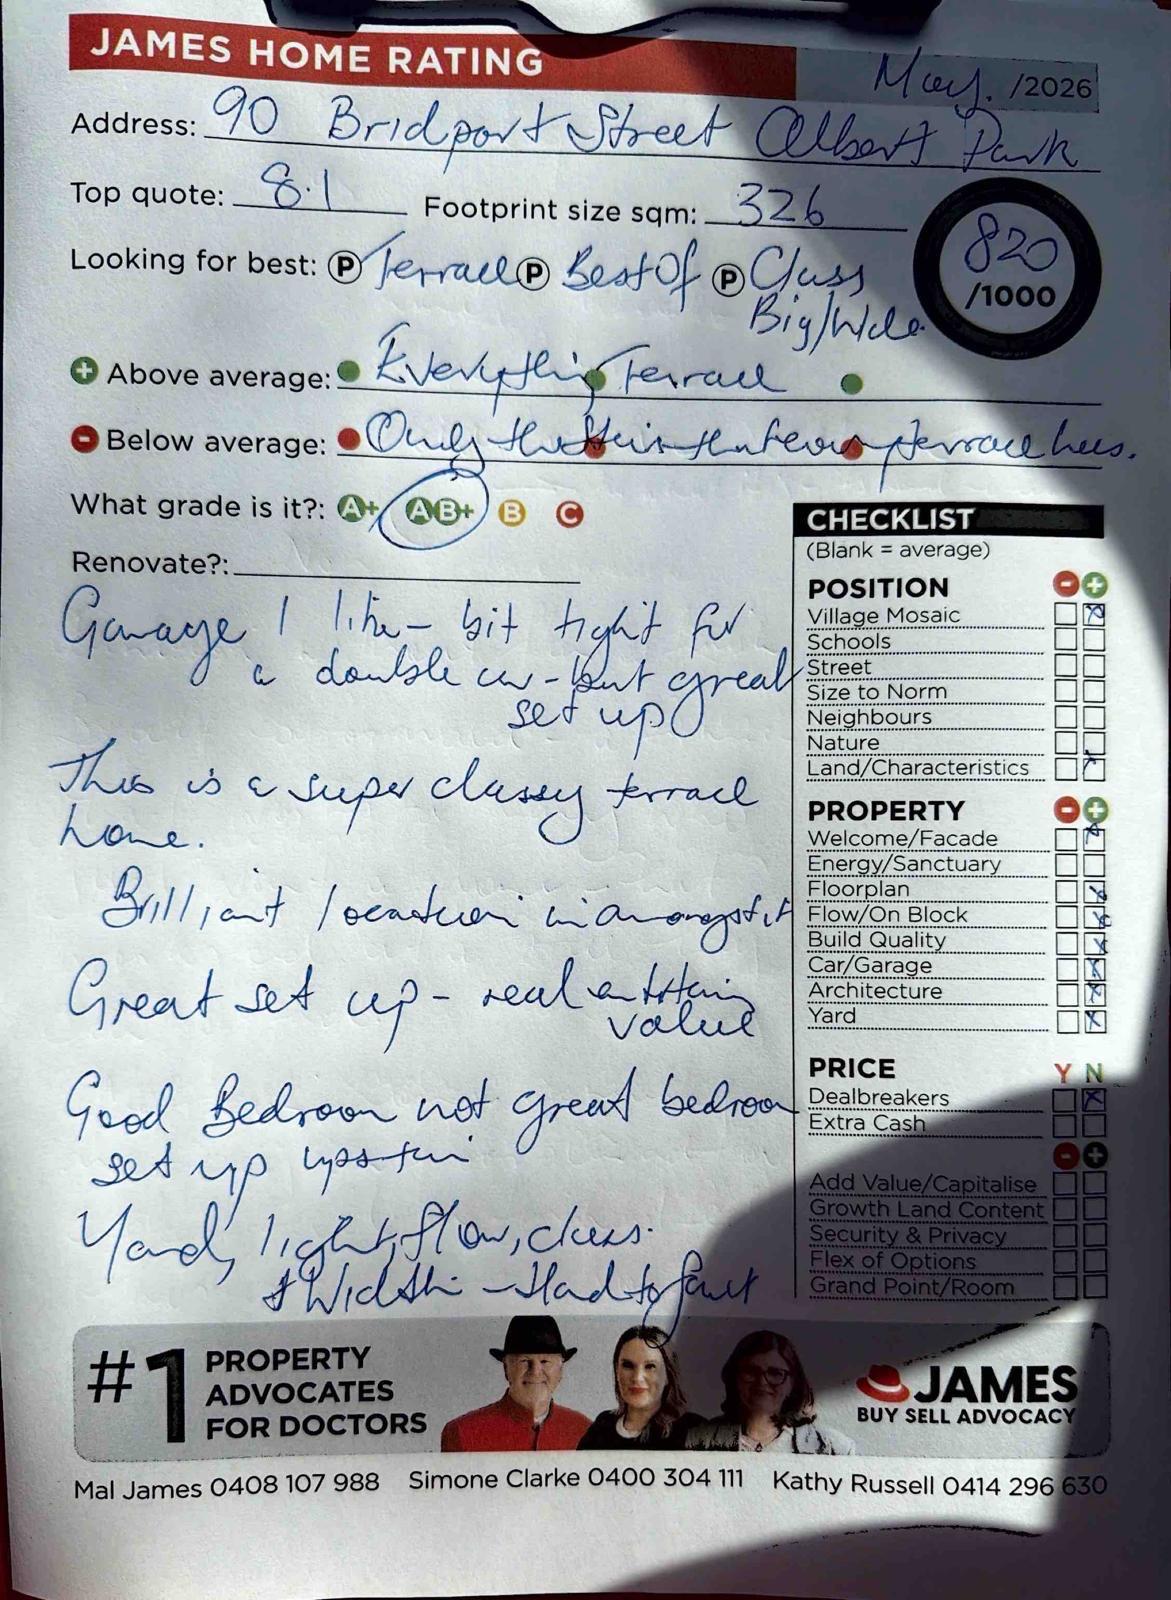 JAMES HOME RATING
May. /2026
Address: 90 Bridport Street Albert Park
Top quote: 8.1 Footprint size sqm: 326
820
/1000
Looking for best: P Terrace P Best Of P Class
Big/Wide
+ Above average: Everything Terrace
- Below average: Only the stairs that every terrace has.
What grade is it?: A+ AB+ B C
Renovate?:
Garage I like - bit tight for
a double car - but great
set up
This is a super classy terrace
home.
Brilliant location in amongst it
Great set up - real entertaining
value
Good Bedroom not great bedroom
set up upstair
Yard, light, flow, class.
& Width - Hard to fault
CHECKLIST
(Blank = average)
POSITION - +
Village Mosaic
Schools
Street
Size to Norm
Neighbours
Nature
Land/Characteristics
PROPERTY - +
Welcome/Facade
Energy/Sanctuary
Floorplan
Flow/On Block
Build Quality
Car/Garage
Architecture
Yard
PRICE Y N
Dealbreakers
Extra Cash
- +
Add Value/Capitalise
Growth Land Content
Security & Privacy
Flex of Options
Grand Point/Room
#1 PROPERTY
ADVOCATES
FOR DOCTORS
JAMES
BUY SELL ADVOCACY
Mal James 0408 107 988 Simone Clarke 0400 304 111 Kathy Russell 0414 296 630